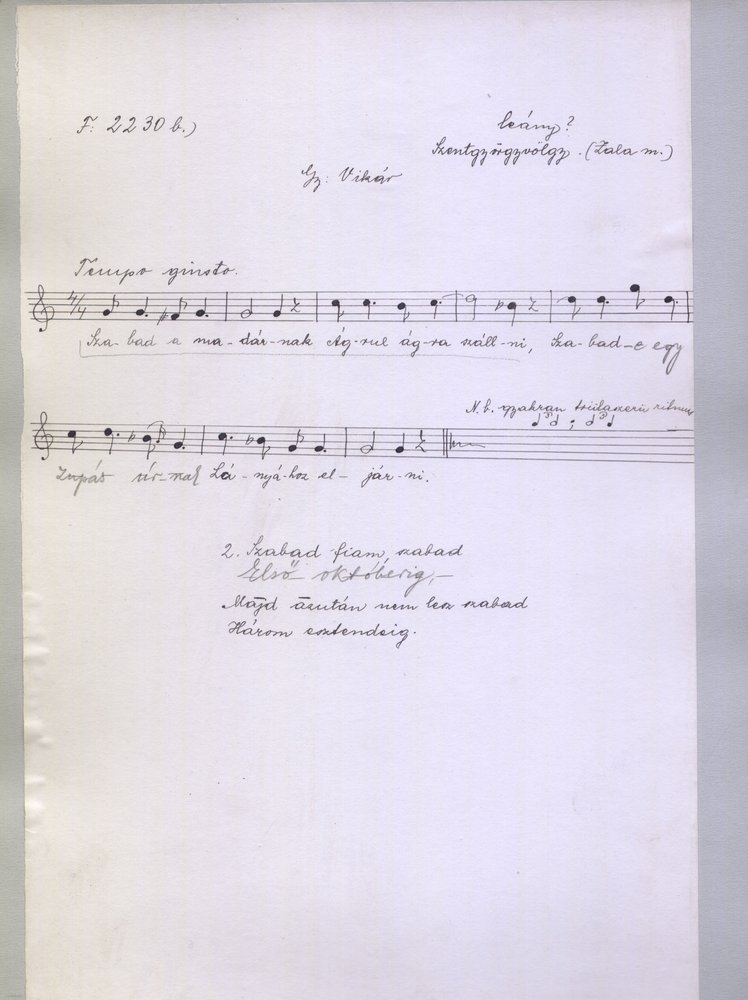 F: 2230 b.)
leány?
Szentgyörgyvölgy. (Zala m.)
Gy: Vikár
Tempo giusto.
4/4
Sza-bad a ma-dár-nak Ág-rul ág-ra száll-ni, Sza-bad-e egy
N. b. gyakran triolaszerü ritmus
zupás úr-nak Lá-nyá-hoz el-jár-ni.
2. Szabad fiam, szabad
Első októberig,-
Majd āzután nem lesz szabad
Három esztendeig.